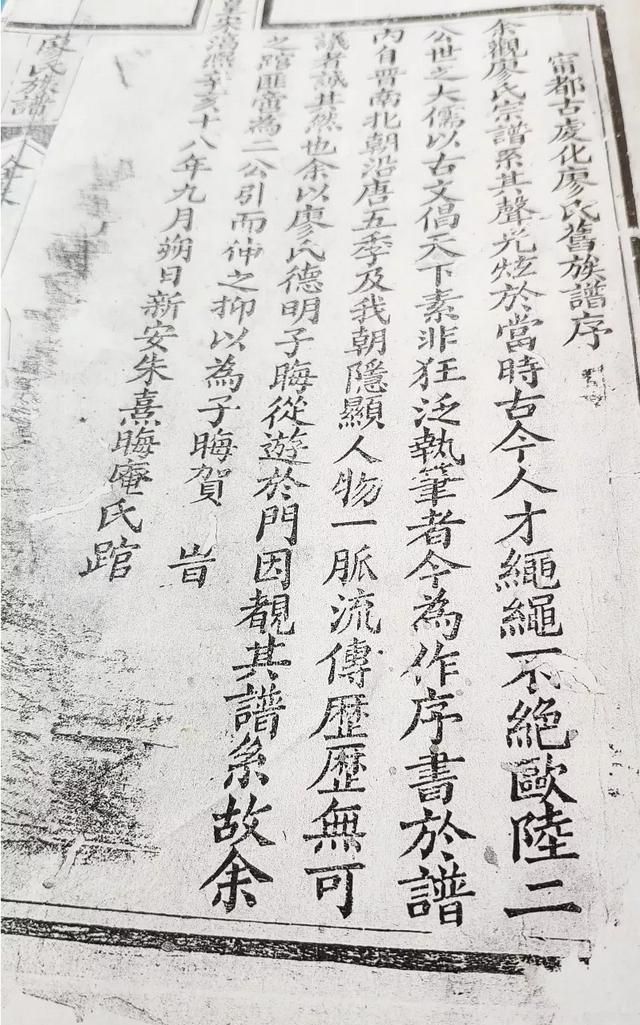 甯都古虔化廖氏舊族譜序
余觀廖氏宗譜系其聲光炫於當時古今人才繩繩不絕歐陸二
公世之大儒以古文倡天下素非狂泛執筆者今為作序書於譜
內自晉南北朝沿唐五季及我朝隱顯人物一脈流傳歷歷無可
議者誠其然也余以廖氏德明子晦從遊於門因覩其譜系故余
之䟦匪啻為二公引而伸之抑以為子晦賀 旹
皇宋淳熙辛亥十八年九月朔日新安朱熹晦庵氏䟦
廖氏族譜